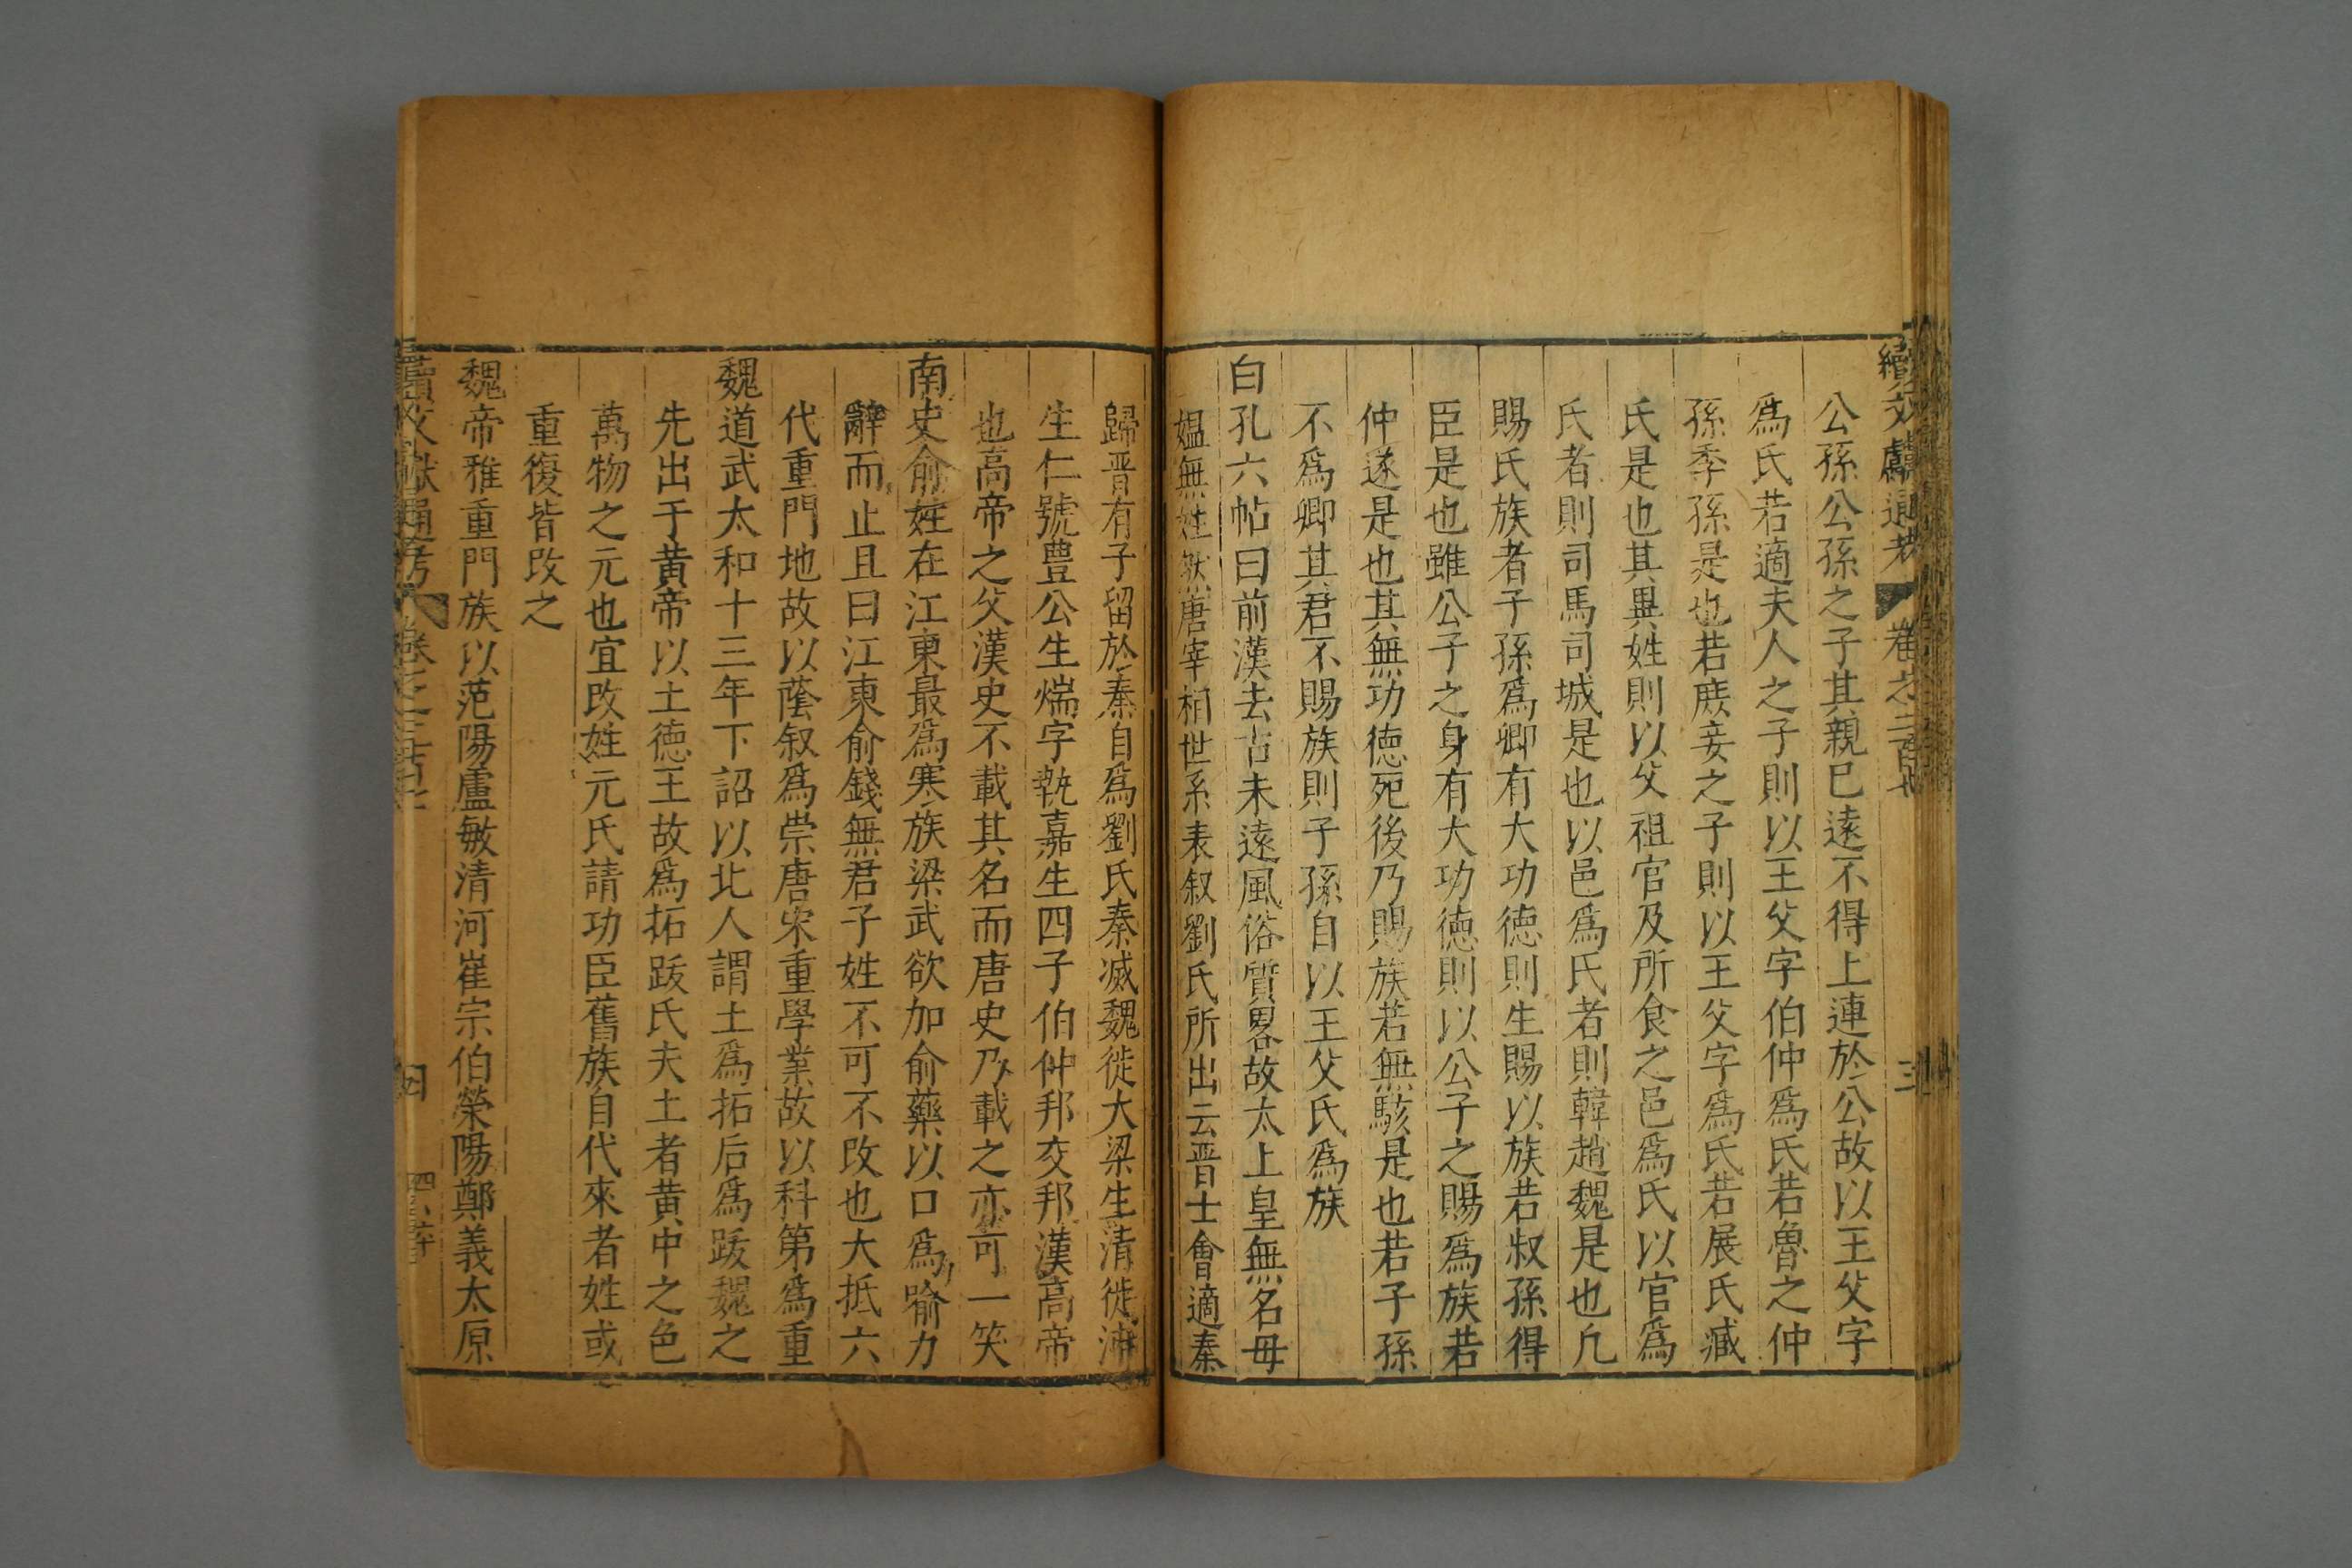 續文獻通考 卷之二百七 三
公孫公孫之子其親已遠不得上連於公故以王父字
爲氏若適夫人之子則以王父字伯仲爲氏若魯之仲
孫季孫是也若庶妾之子則以王父字爲氏若展氏臧
氏是也其異姓則以父祖官及所食之邑爲氏以官爲
氏者則司馬司城是也以邑爲氏者則韓趙魏是也凢
賜氏族者子孫爲卿有大功德則生賜以族若叔孫得
臣是也雖公子之身有大功德則以公子之賜爲族若
仲遂是也其無功德死後乃賜族若無駭是也若子孫
不爲卿其君不賜族則子孫自以王父氏爲族
白孔六帖曰前漢去古未遠風俗質畧故太上皇無名母
媼無姓然唐宰相世系表叙劉氏所出云晋士會適秦
歸晋有子留於秦自爲劉氏秦滅魏徙大梁生清徙沛
生仁號豊公生煓字執嘉生四子伯仲邦交邦漢高帝
也高帝之父漢史不載其名而唐史乃載之亦可一笑
南史俞姓在江東最爲寒族梁武欲加俞藥以口爲喻力
辭而止且曰江東俞錢無君子姓不可不改也大抵六
代重門地故以蔭叙爲崇唐宋重學業故以科第爲重
魏道武太和十三年下詔以北人謂土爲拓后爲跋魏之
先出于黄帝以土德王故爲拓跋氏夫土者黄中之色
萬物之元也宜改姓元氏請功臣舊族自代來者姓或
重復皆改之
魏帝雅重門族以范陽盧敏清河崔宗伯榮陽鄭義太原
續文獻通考 卷之二百七 四